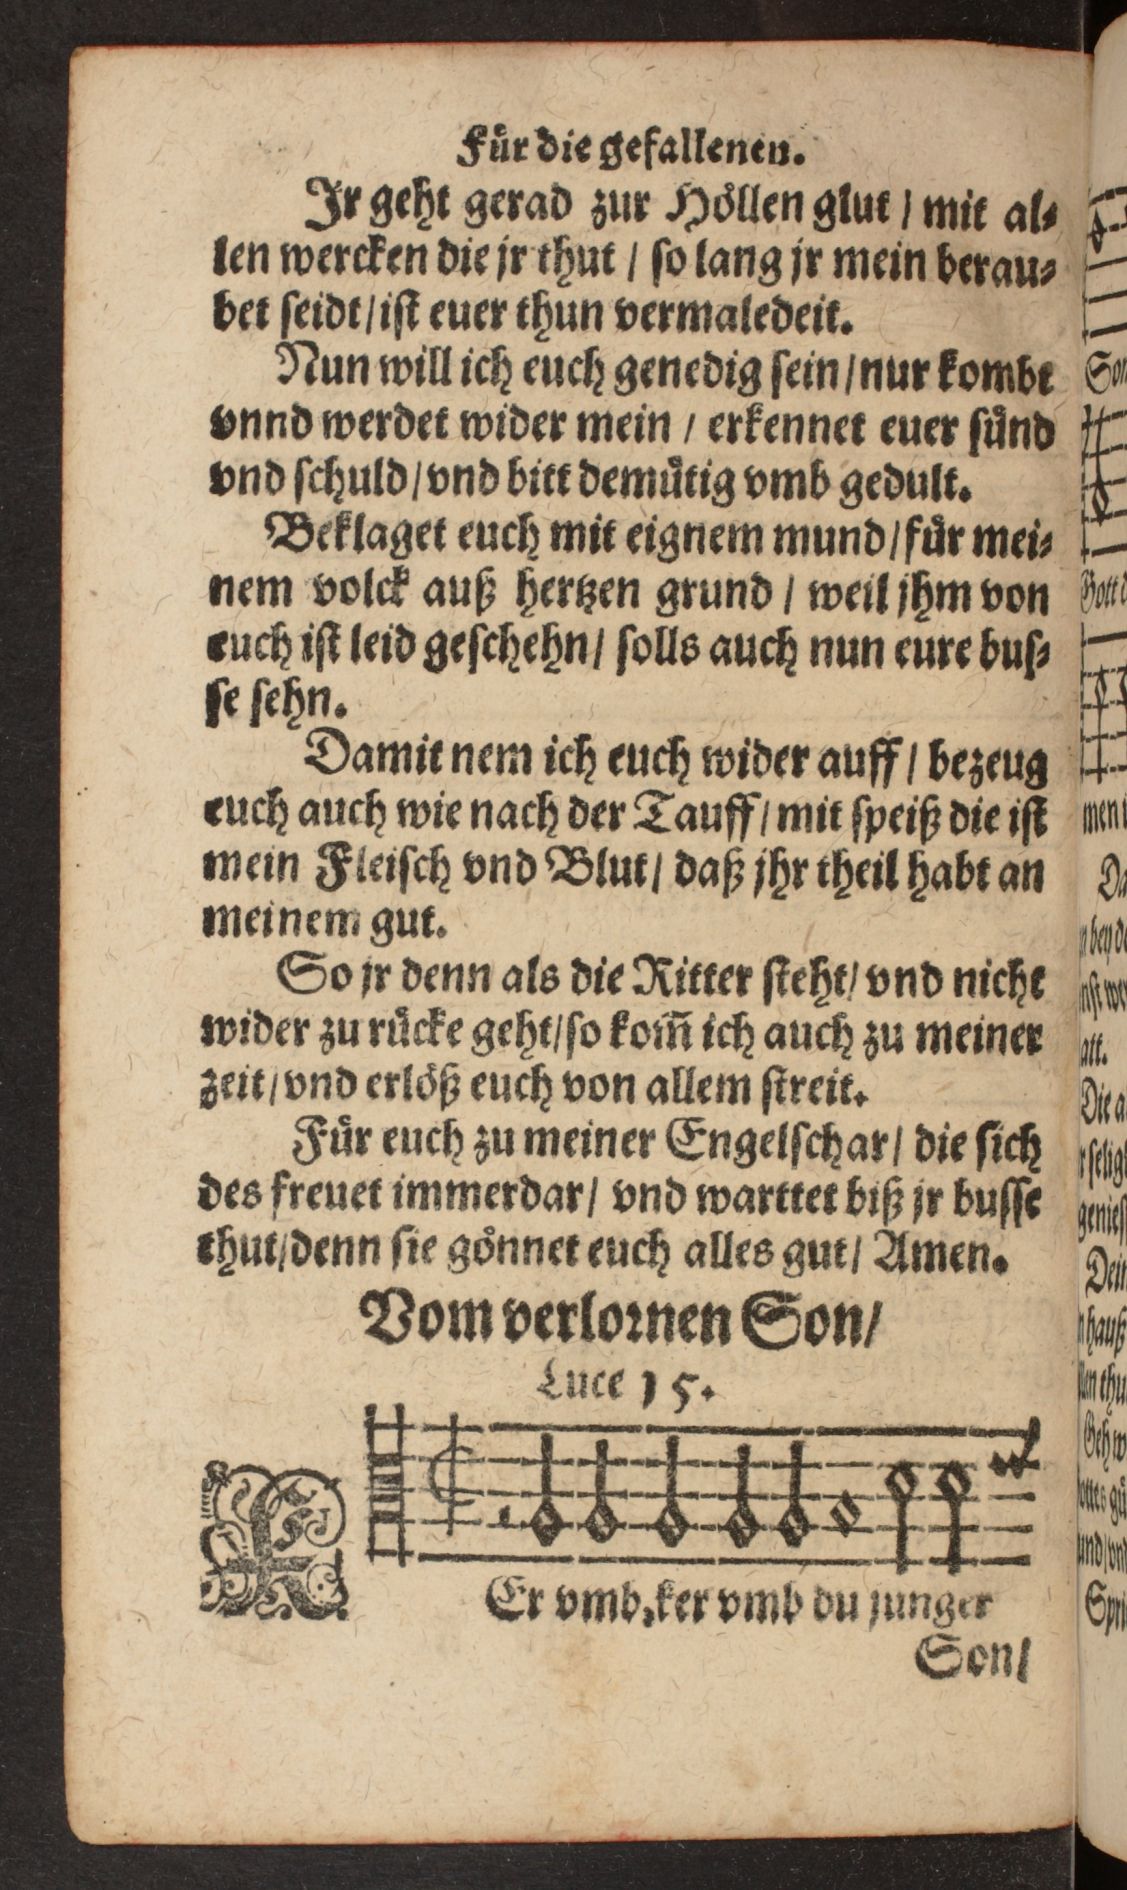 Fůr die gefallenen.
Jr geht gerad zur Hőllen glut / mit al⸗
len wercken die jr thut / so lang jr mein berau⸗
bet seidt / ist euer thun vermaledeit.
Nun will ich euch genedig sein / nur kombt
vnnd werdet wider mein / erkennet euer sůnd
vnd schuld / vnd bitt demůtig vmb gedult.
Beklaget euch mit eignem mund / fůr mei⸗
nem volck auß hertzen grund / weil jhm von
euch ist leid geschehn / solls auch nun eure bus⸗
se sehn.
Damit nem ich euch wider auff / bezeug
euch auch wie nach der Tauff / mit speiß die ist
mein Fleisch vnd Blut / daß jhr theil habt an
meinem gut.
So jr denn als die Ritter steht / vnd nicht
wider zu růcke geht / so kom̃ ich auch zu meiner
zeit / vnd erlöß euch von allem streit.
Fůr euch zu meiner Engelschar / die sich
des freuet immerdar / vnd warttet biß jr busse
thut / denn sie gönnet euch alles gut / Amen.
Vom verlornen Son /
Luce 15.
KEr vmb, ker vmb du junger
Son /